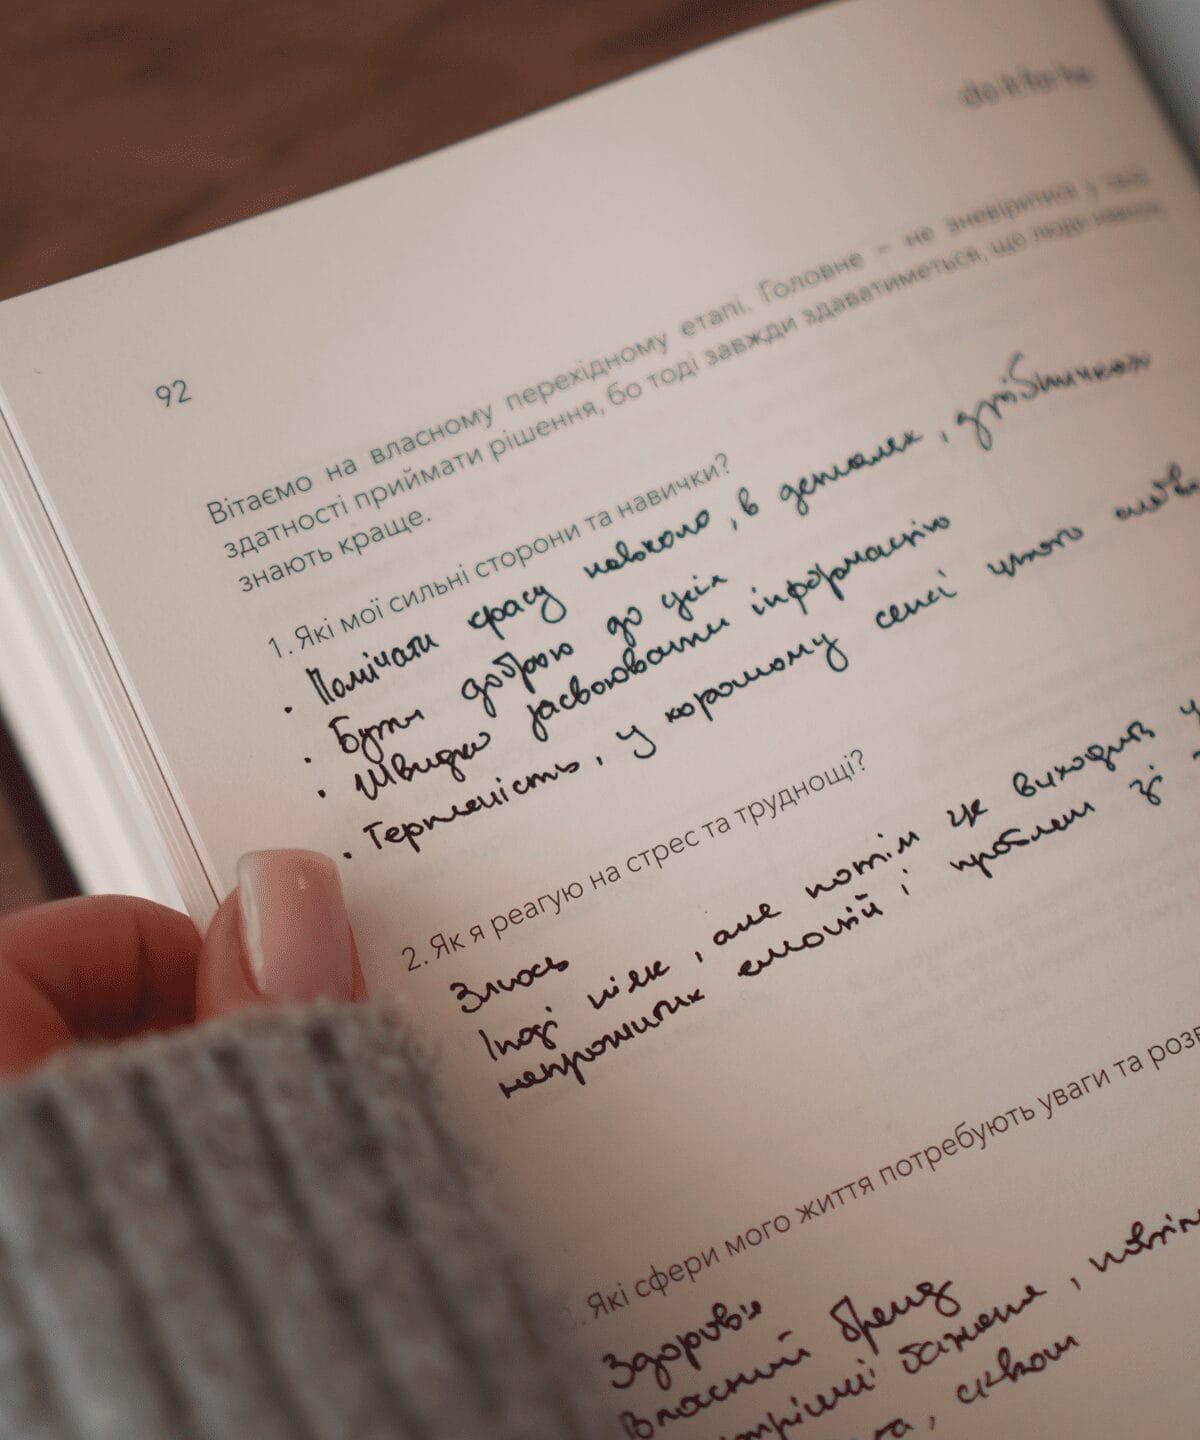 do it for
92
Вітаємо на власному перехідному етапі. Головне – не зневіритися у
здатності приймати рішення, бо тоді завжди здаватиметься, що люди
знають краще.
1. Які мої сильні сторони та навички?
• Помічати красу навколо, в деталях, дрібничках
• Бути доброю до усіх
• Швидко засвоювати інформацію
• Терплячість, у хорошому сенсі цього
2. Як я реагую на стрес та труднощі?
Злюсь
Іноді ніяк, але потім це виходить у
непрожитих емоцій і проблем зі
Які сфери мого життя потребують уваги та розв
Здоров'я
Власний бренд
бажання,